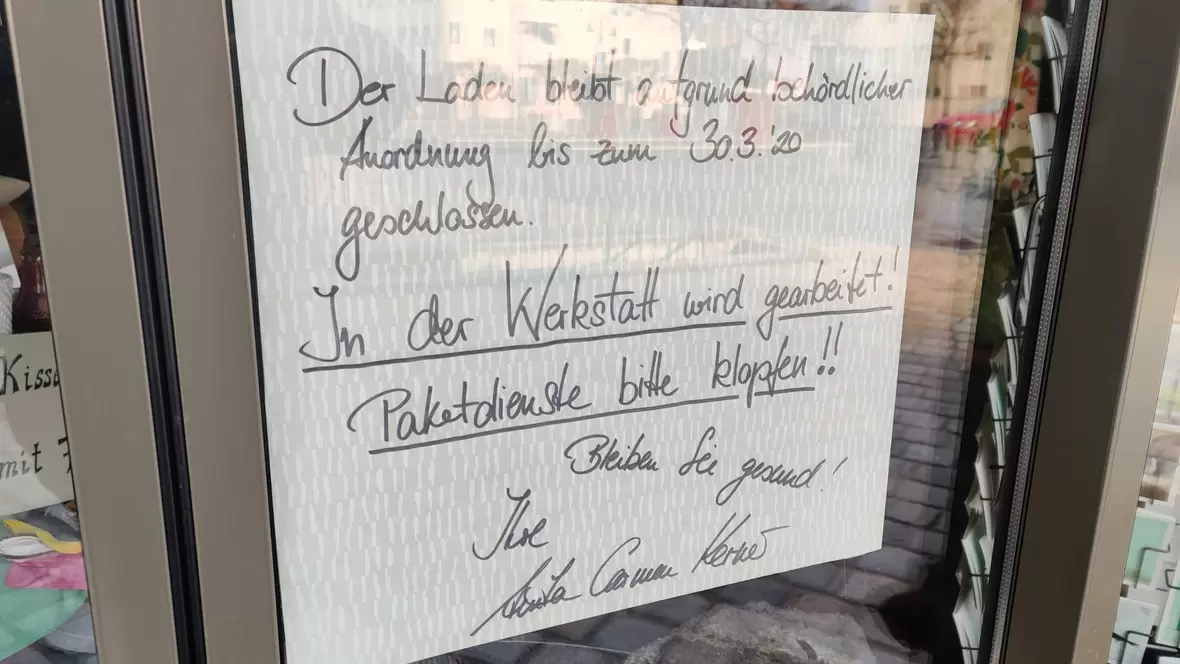 Der Laden bleibt aufgrund behördlicher
Anordnung bis zum 30.3.'20
geschlossen.
In der Werkstatt wird gearbeitet!
Paketdienste bitte klopfen!!
Bleiben Sie gesund!
Ihre
Carmen
mit